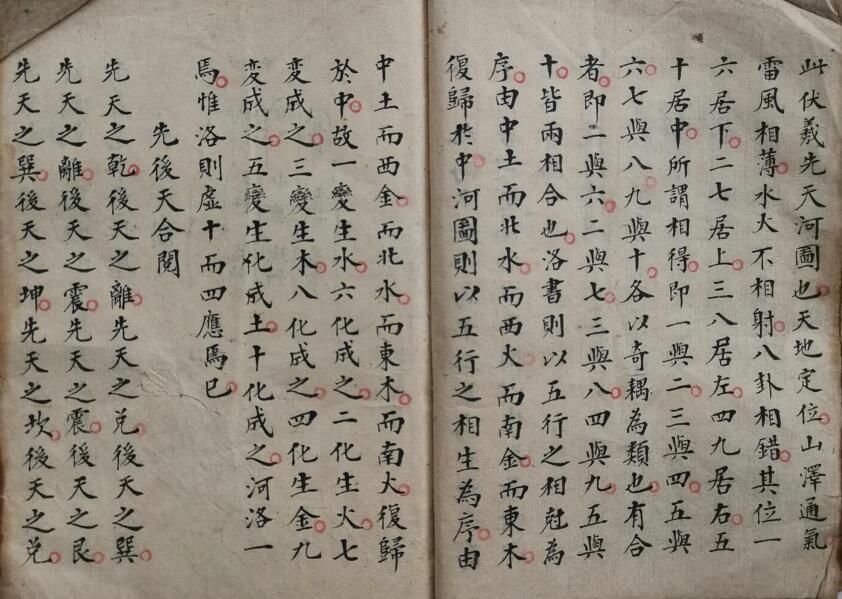 此伏羲先天河圖也天地定位山澤通氣
雷風相薄水火不相射八卦相錯其位一
六居下二七居上三八居左四九居右五
十居中所謂相得即一與二三與四五與
六七與八九與十各以奇耦為類也有合
者即二與六二與七三與八四與九五與
十皆兩相合也洛書則以五行之相尅為
序由中土而北水而西火而南金而東木
復歸於中河圖則以五行之相生為序由
中土而西金而北水而東木而南火復歸
於中故一變生水六化成之二化生火七
变成之三變生木八化成之四化生金九
变成之五變生化成土十化成之河洛一
焉惟洛則虛十而四應焉已
先後天合閱
先天之乾後天之離先天之兌後天之巽
先天之離後天之震先天之震後天之艮
先天之巽後天之坤先天之坎後天之兌